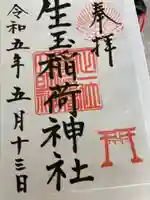 奉拝
生玉稲荷神社
令和五年五月十三日